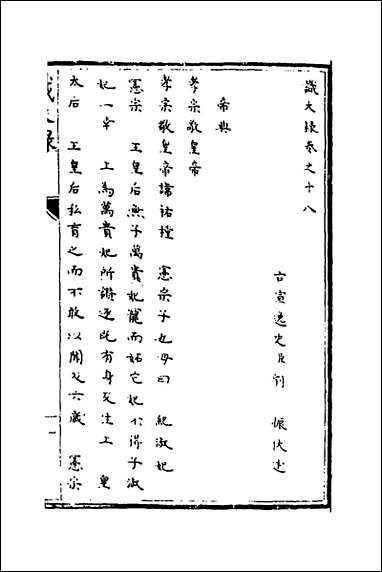 識大錄卷之十八
古宣逸史臣劉 振伏述
帝典
孝宗敬皇帝
孝宗敬皇帝諱祐樘 憲宗子也母曰 紀淑妃
憲宗 王皇后無子萬貴妃寵而妬它妃不得子淑
妃一幸 上為萬貴妃所譖逐既有身矣生上 皇
太后 王皇后私育之而不敢以聞及六歲 憲宗
識大錄